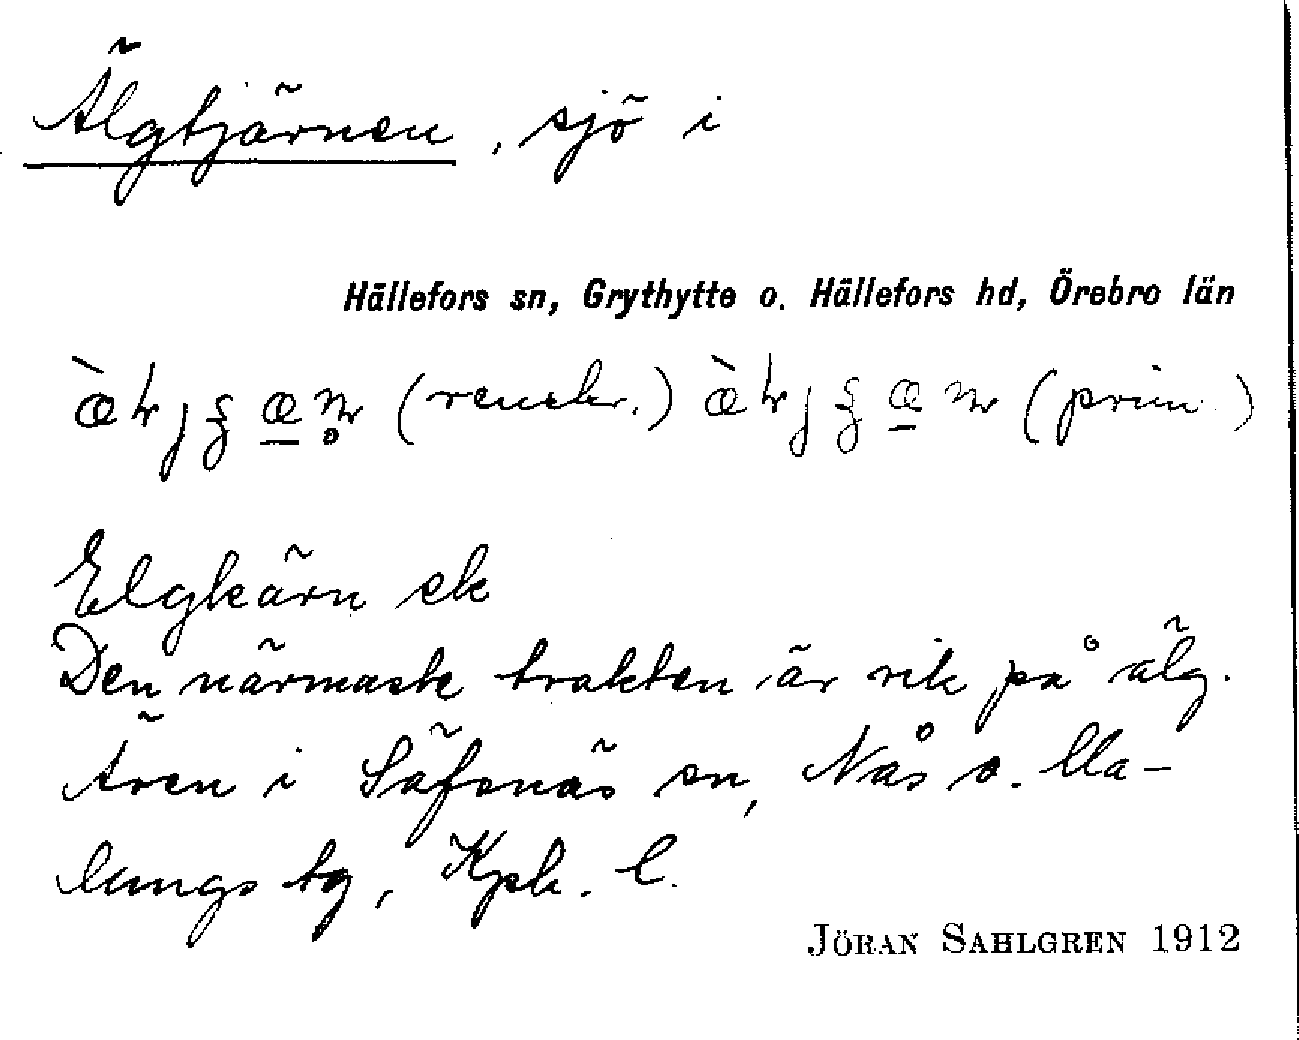 Älgtjärnen, sjö i
Hällefors sn, Grythytte o. Hällefors hd, Örebro län
(renskr.) (prim.)
Elgkärn ek
Den närmaste trakten är rik på älg.
Även i Säfsnäs sn, Nås o. Ma-
lungs tg, Kpb. l.
JÖRAN SAHLGREN 1912